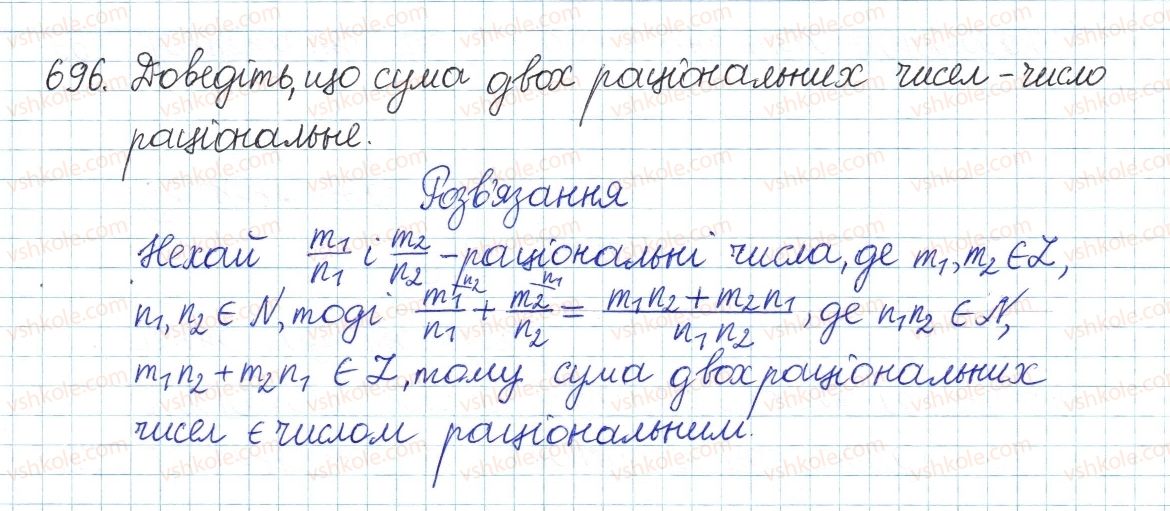 696. Доведіть, що сума двох раціональних чисел – число
раціональне.
Розв'язання
Нехай m₁/n₁ і m₂/n₂ – раціональні числа, де m₁, m₂ ∈ Z,
n₁, n₂ ∈ N, тоді m₁/n₁ ⁽ⁿ²⁾ + m₂/n₂ ⁽ⁿ¹⁾ = (m₁n₂ + m₂n₁)/(n₁n₂), де n₁n₂ ∈ N,
m₁n₂ + m₂n₁ ∈ Z, тому сума двох раціональних
чисел є числом раціональним.